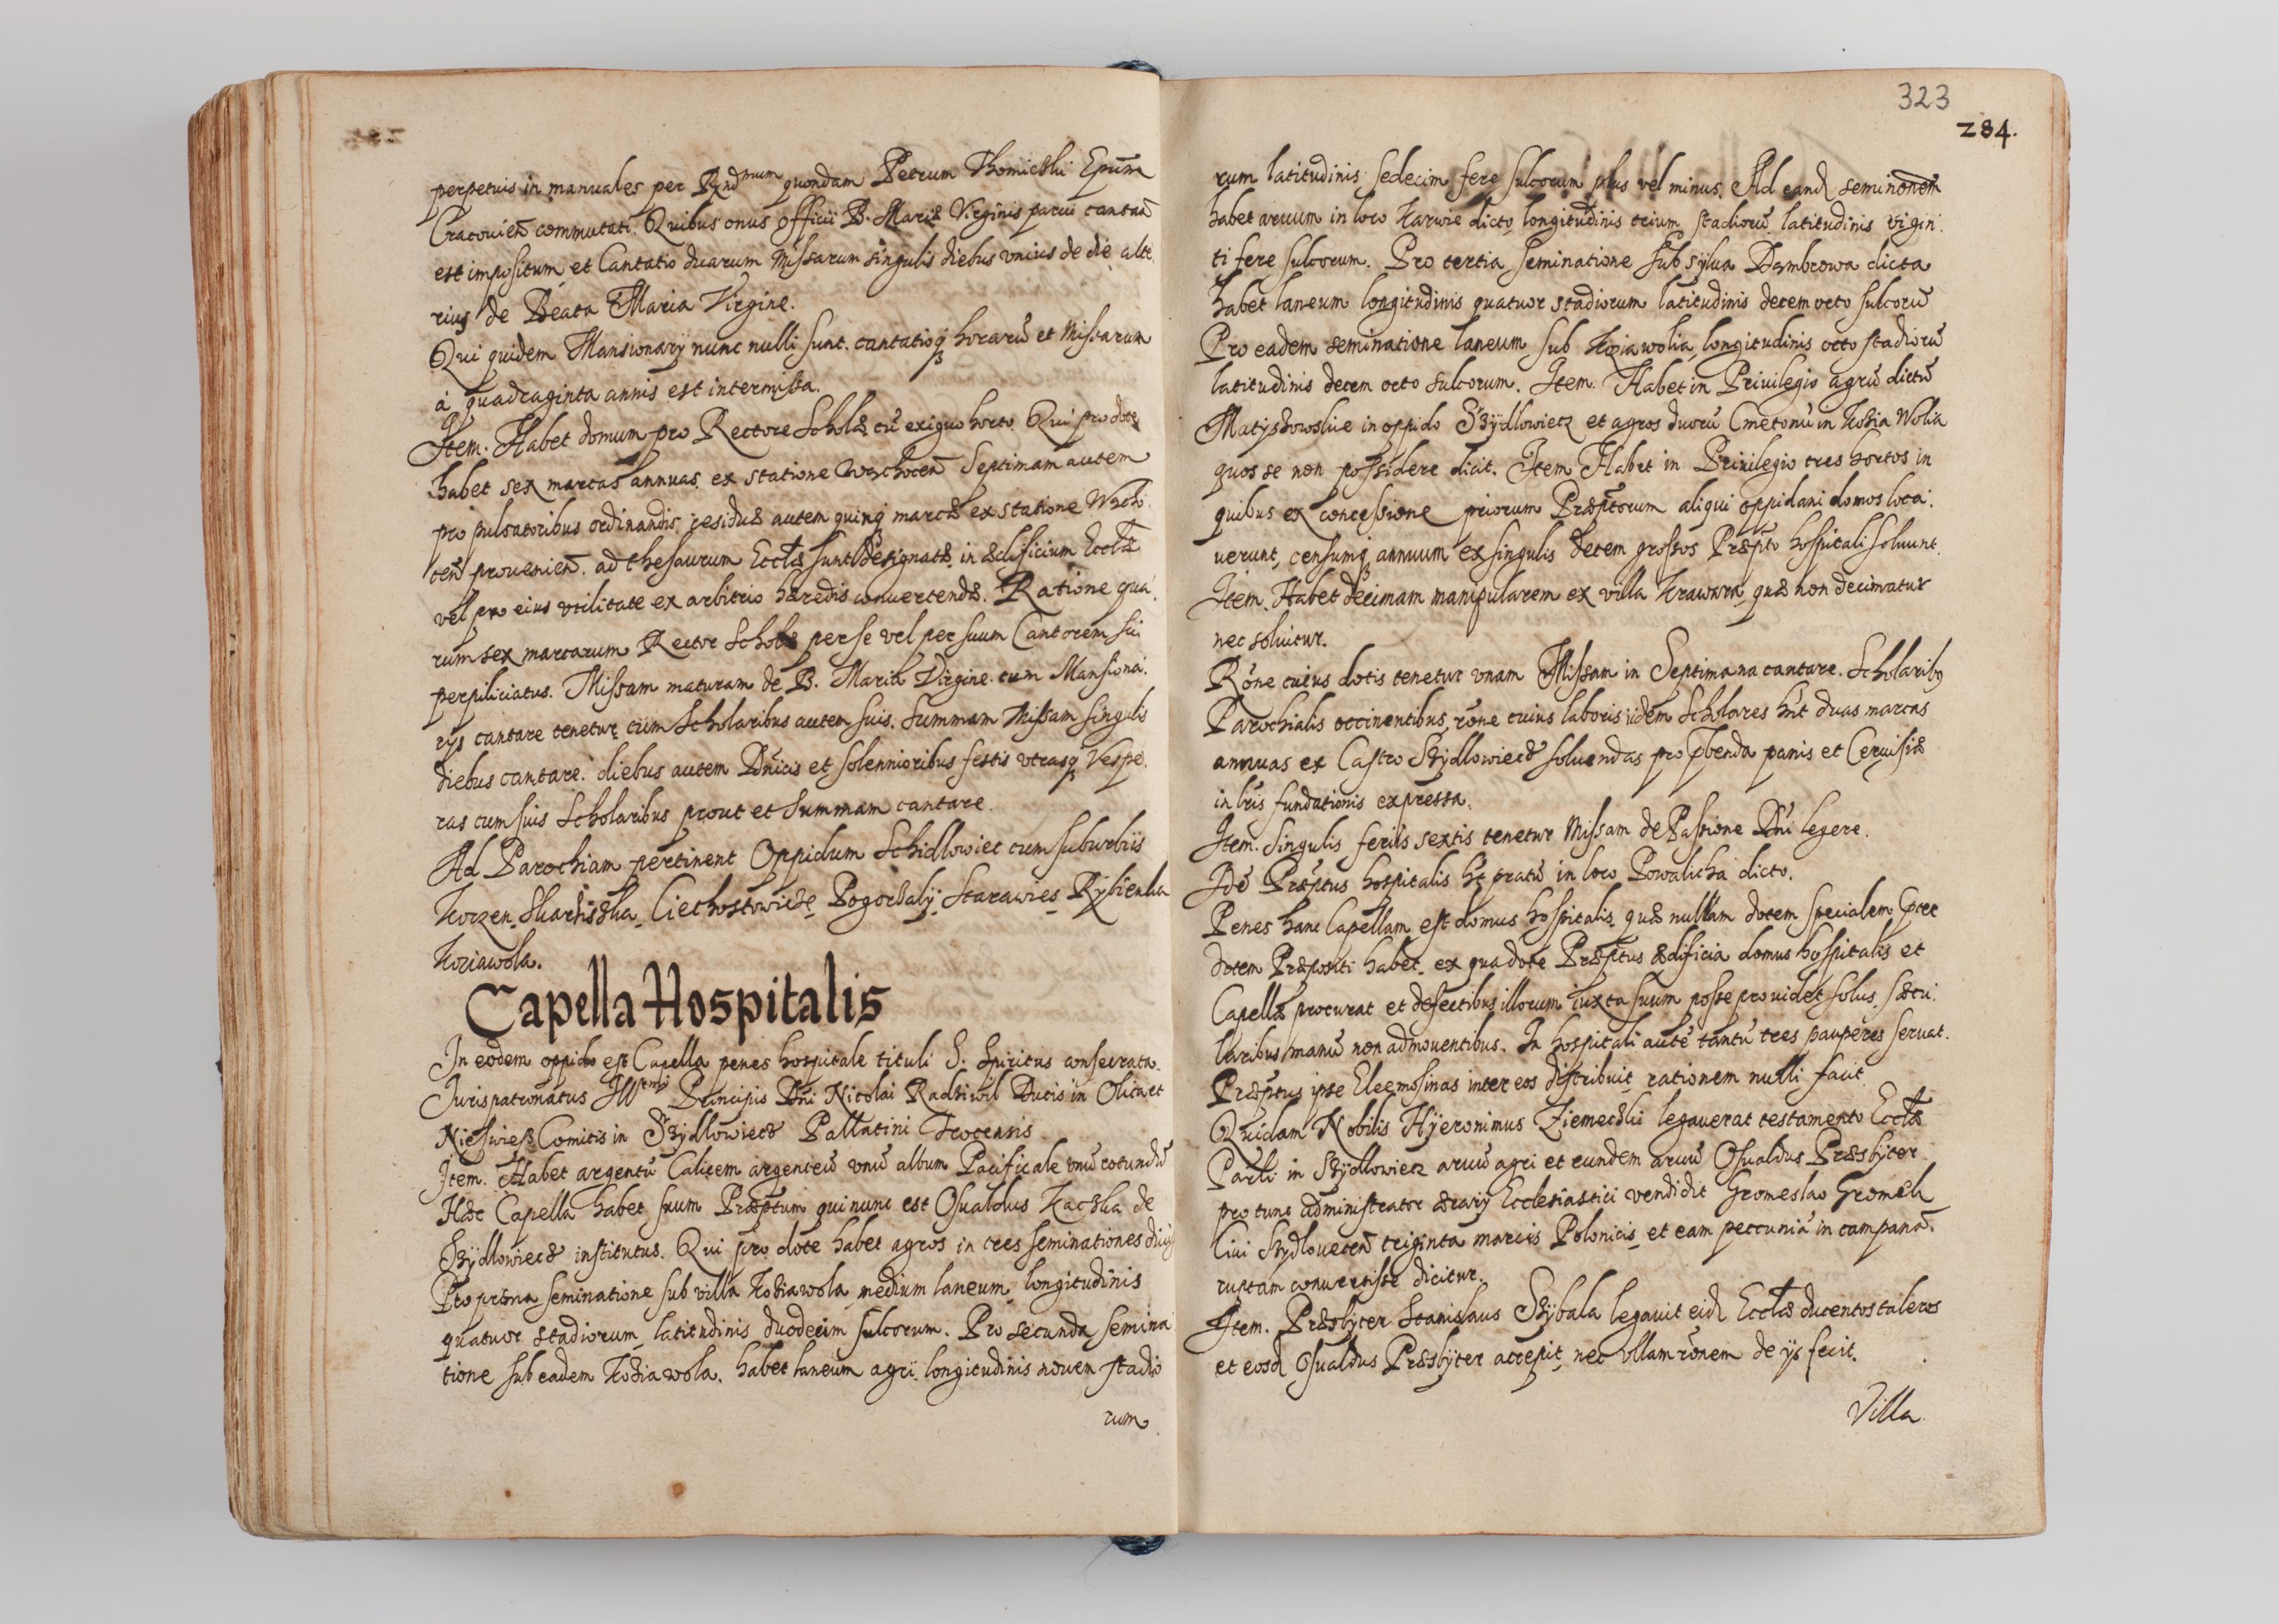 perpetuis in manuales per Rndmum quondam Petrum Thomicski Epūm
Cracovień commutati. Quibus onus officii B. Mariæ Virginis parvi cantań
est impositum et Cantatio duarum Missarum singulis diebus unius de die alte
rius de Beata Maria Virgine.
Qui quidem Mansionarÿ nunc nulli sunt. cantatioq; horarū et Missarum
à quadraginta annis est intermissa.
Item. Habet domum pro Rectore Scholæ cū exiguo horto. Qui pro dote
habet sex marcas annuas ex statione Wachocen̄ Septimam autem
pro pulsatoribus ordinandis, residuæ autem quinq; marcæ ex statione Wacho
cen̄ provenien̄. ad thesaurum Ecclæ sunt designatæ in ædificium Ecclæ
vel pro eius utilitate ex arbitrio hæredis convertendæ. Ratione qua
rum sex marcarum Rector Scholæ per se vel per suum Cantorem su
perpiliciatus. Missam maturam de B. Maria Virgine cum Mansiona
rÿs cantare tenetur cum Scholaribus autem suis. Summam Missam singulis
diebus cantare. diebus autem Dn̄icis et solennioribus festis utrasq; Vespe
ras cum suis Scholaribus prout et Summam cantare.
Ad Parochiam pertinent Oppidum Schidlowiec cum suburbiis
Korzen, Skarsiska, Ciechostowicze, Pogorzalÿ, Starawies, Rÿbienka
Koziawola.
Capella Hospitalis
In eodem oppido est Capella penes hospitale tituli S. Spiritus consecrata.
Jurispatronatus Illrmi Principis Dn̄i Nicolai Radziwil Ducis in Olica et
Nieswiesz Comitis in Szÿdlowiecz Pallatini Trocensis
Item. Habet argentū Calicem argenteū unū album Pacificale unū rotundū
Hæc Capella habet suum Præptum qui nunc est Osualdus Kaczka de
Szÿdlowiecz institutus. Qui pro dote habet agros in tres seminationes
Pro prima seminatione sub villa Koziawola medium laneum, longitudinis
quatuor stadiorum, latitudinis duodecim sulcorum. Pro secunda semina
tione sub eadem Koziawola. habet laneum agri longitudinis novem stadio
rum
323
284.
rum latitudinis sedecim fere sulcorum plus vel minus. Ad eand seminōnem
habet arvum in loco Karwie dicto longitudinis trium stadiorū latitudinis vigin
ti fere sulcorum. Pro tertia seminatione sub sylva Dambrowa dicta
habet laneum longitudinis quatuor stadiorum latitudinis decem octo sulcorū
Pro eadem seminatione laneum sub Koziawolia, longitudinis octo stadiorū
latitudinis decem octo sulcorum. Item. Habet in Privilegio agrū dictū
Matyskowskie in oppido Szÿdlowiecz et agros duorū Cmetonū in Kozia Wolia
quos se non possidere dicit. Item Habet in Privilegio tres hortos in
quibus ex concessione priorum Præptorum aliqui oppidani domos loca
verunt, censumq; annuum ex singulis decem grossos Præpto hospitali solvunt.
Item. Habet decimam manipularem ex villa Krawara, quæ non decimatur
nec solvitur.
Rōne cuius dotis tenetur unam Missam in Septimana cantare. Scholarib9
Parochialis occinentibus, rōne cuius laboris iidem Scholares hn̄t duas marcas
annuas ex Castro Szÿdlowiecz solvendas pro pbenda panis et Cervisiæ
in lr̄is fundationis expressa.
Item. Singulis feriis sextis tenetur Missam de Passione Dn̄i legere.
Idē Præptus hospitalis ht pratū in loco Powalicha dicto.
Penes hanc Capellam est domus hospitalis quæ nullam dotem specialem ꝑter
dotem Præpositi habet. ex qua dote Præptus ædificia domus hospitalis et
Capellæ procurat et defectibus illorum iuxta suum posse providet solus, sæcu
laribus manū non admoventibus. In hospitali autē tantū tres pauperes servat.
Præptus ipse Eleemosinas inter eos distribuit rationem nulli facit
Quidam Nobilis Hÿeronimus Ziemeczki legaverat testamento Ecclæ
Parli in Szÿdlowiecz arvū agri et eundem arvū Osualdus Præsbÿter
pro tunc administrator ærarÿ Ecclesiastici vendidit Gromeslao Gromek
Civi Szydlovecen̄ triginta marcis Polonicis et eam peccuniā in campanā
ruptam convertisse dicitur.
Item. Præsbÿter Stanislaus Szÿbala legavit eid Ecclæ ducentos taleros
et eosd Osualdus Præsbÿter accepit, nec ullam rōnem de ÿs fecit.
Villa